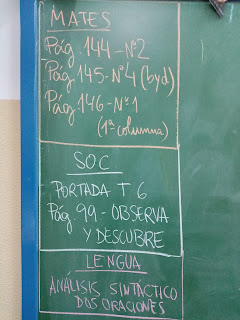 MATES
Pág. 144 - Nº2
Pág 145 - Nº4 (b y d)
Pág 146 - Nº1
(1ª columna)
SOC
PORTADA T 6
Pág. 99 - OBSERVA
Y DESCUBRE
LENGUA
ANÁLISIS SINTÁCTICO
DOS ORACIONES